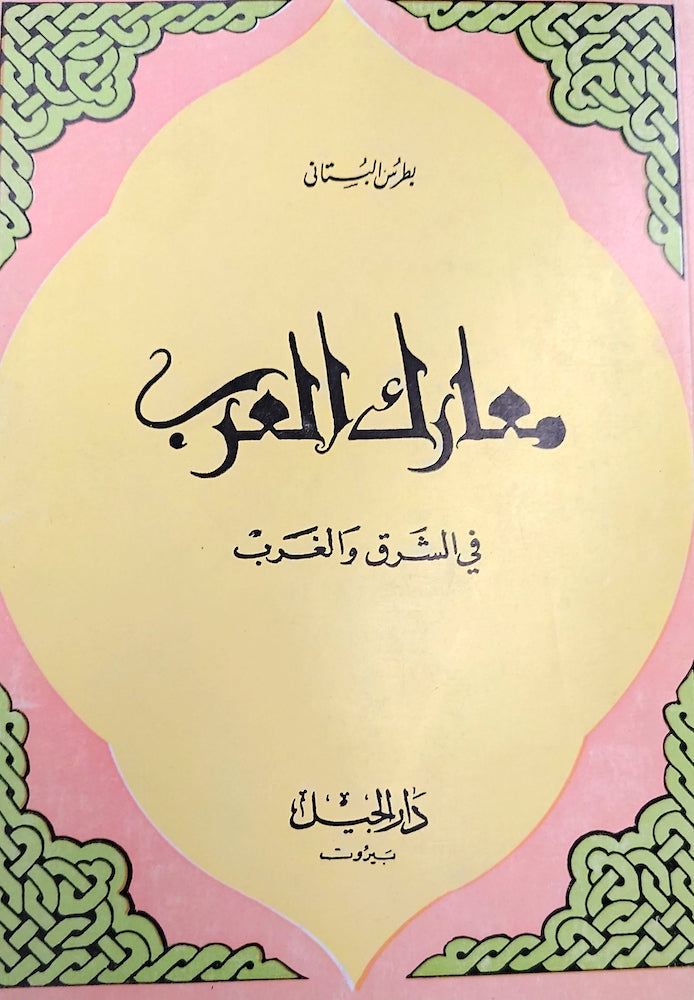 بطرس البُستاني
معارك العرب
في الشَرق وَالغَربْ
دَار الجيْل
بَيروت